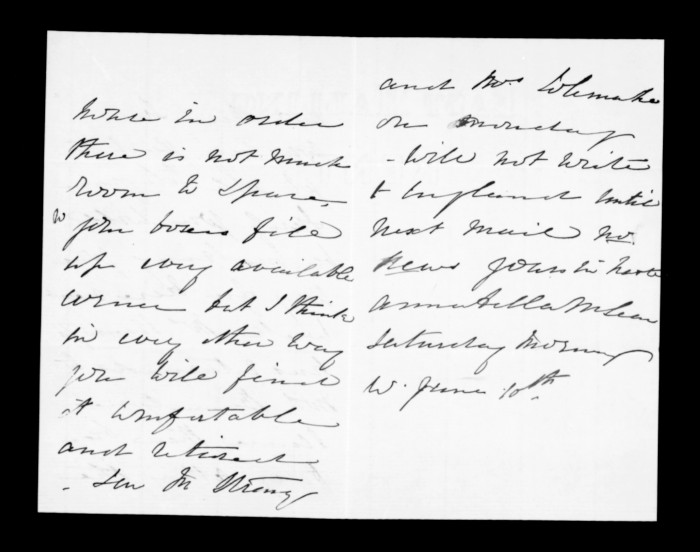 house in order
there is not much
room to spare.
your boxes file
up every available
corner but I think
in every other way
you will find
it comfortable
and retired
- Lew M Strong
and Mrs
on monday
- will not write
to England until
next mail no
news yours in haste
Annabella McLean
Saturday Morning
W. June 10th